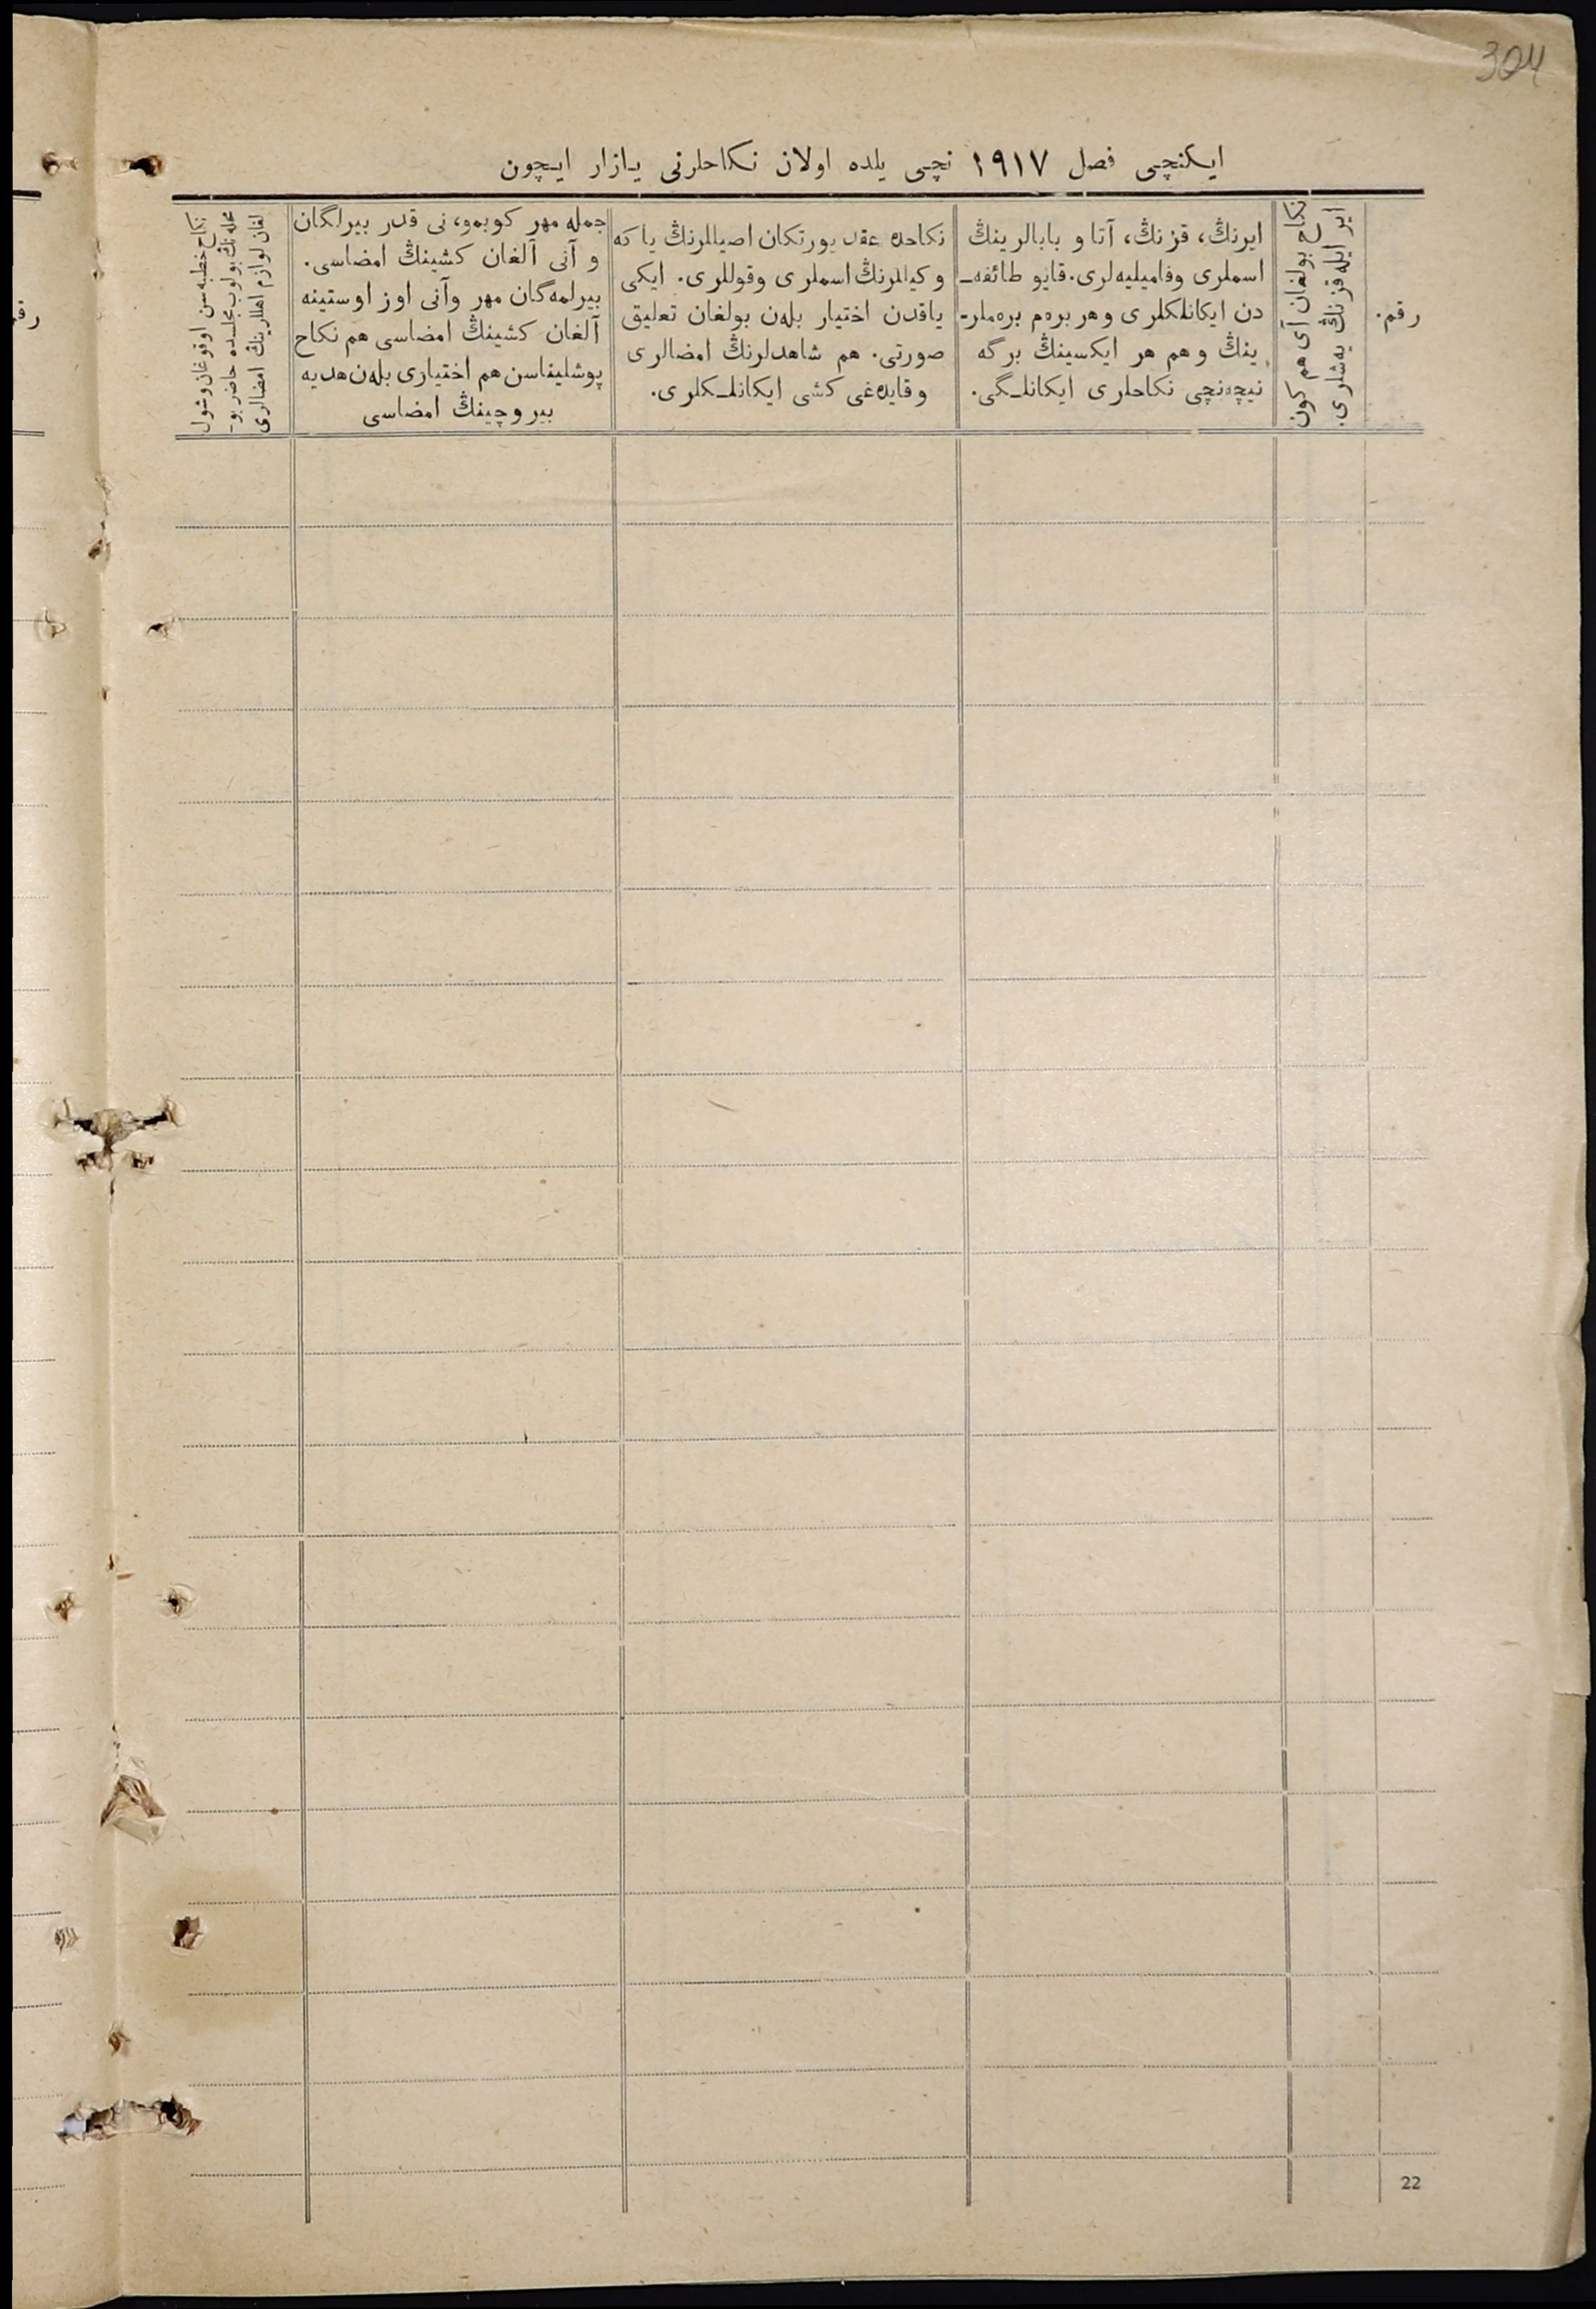 304
ایکنچی فصل ١٩١٧ نچی یلده اولان نکاحلرنی یازار ایچون
رقم.
ایر ایله قزنڭ یه‌شلری.
نکاح بولغان آی هم کون
ایرنڭ، قزنڭ، آتا و بابالرینڭ
اسملری وفامیلیه‌لری. قایو طائفه‌ـ
دن ایکانلکلری وهر بره‌م بره‌ملر-
ینڭ وهم هر ایکسینڭ برگه
نیچه‌نچی نکاحلری ایکانلـگی.
نکاحده عقد یورتکان اصیللرنڭ یا که
وکیللرنڭ اسملری وقوللری. ایکی
یاقدن اختیار بله‌ن بولغان تعلیق
صورتی. هم شاهدلرنڭ امضالری
وقایده‌غی کشی ایکانلـکلری.
جمله مهر کوبمو، نی قدر بیرلگان
و آنی آلغان کشینڭ امضاسی.
بیرلمه‌گان مهر وآنی اوز اوستینه
آلغان کشینڭ امضاسی هم نکاح
پوشلیناسن هم اختیاری بله‌ن هدیه
بیروچینڭ امضاسی
نکاح خطبه‌سن اوقوغان وشول
محله‌نڭ بولوب مجلسده حاضر بو-
لغان لوازم اهللرینڭ امضالری
رقم
22